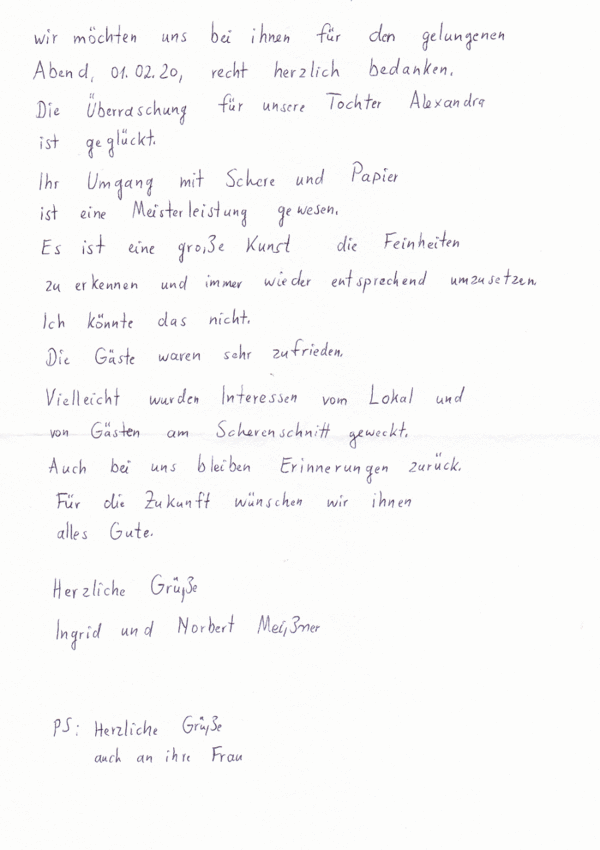 wir möchten uns bei ihnen für den gelungenen
Abend, 01.02.20, recht herzlich bedanken.
Die Überraschung für unsere Tochter Alexandra
ist geglückt.
Ihr Umgang mit Schere und Papier
ist eine Meisterleistung gewesen.
Es ist eine große Kunst die Feinheiten
zu erkennen und immer wieder entsprechend umzusetzen.
Ich könnte das nicht.
Die Gäste waren sehr zufrieden.
Vielleicht wurden Interessen vom Lokal und
von Gästen am Scherenschnitt geweckt.
Auch bei uns bleiben Erinnerungen zurück.
Für die Zukunft wünschen wir ihnen
alles Gute.
Herzliche Grüße
Ingrid und Norbert Meißner
PS: Herzliche Grüße
auch an ihre Frau